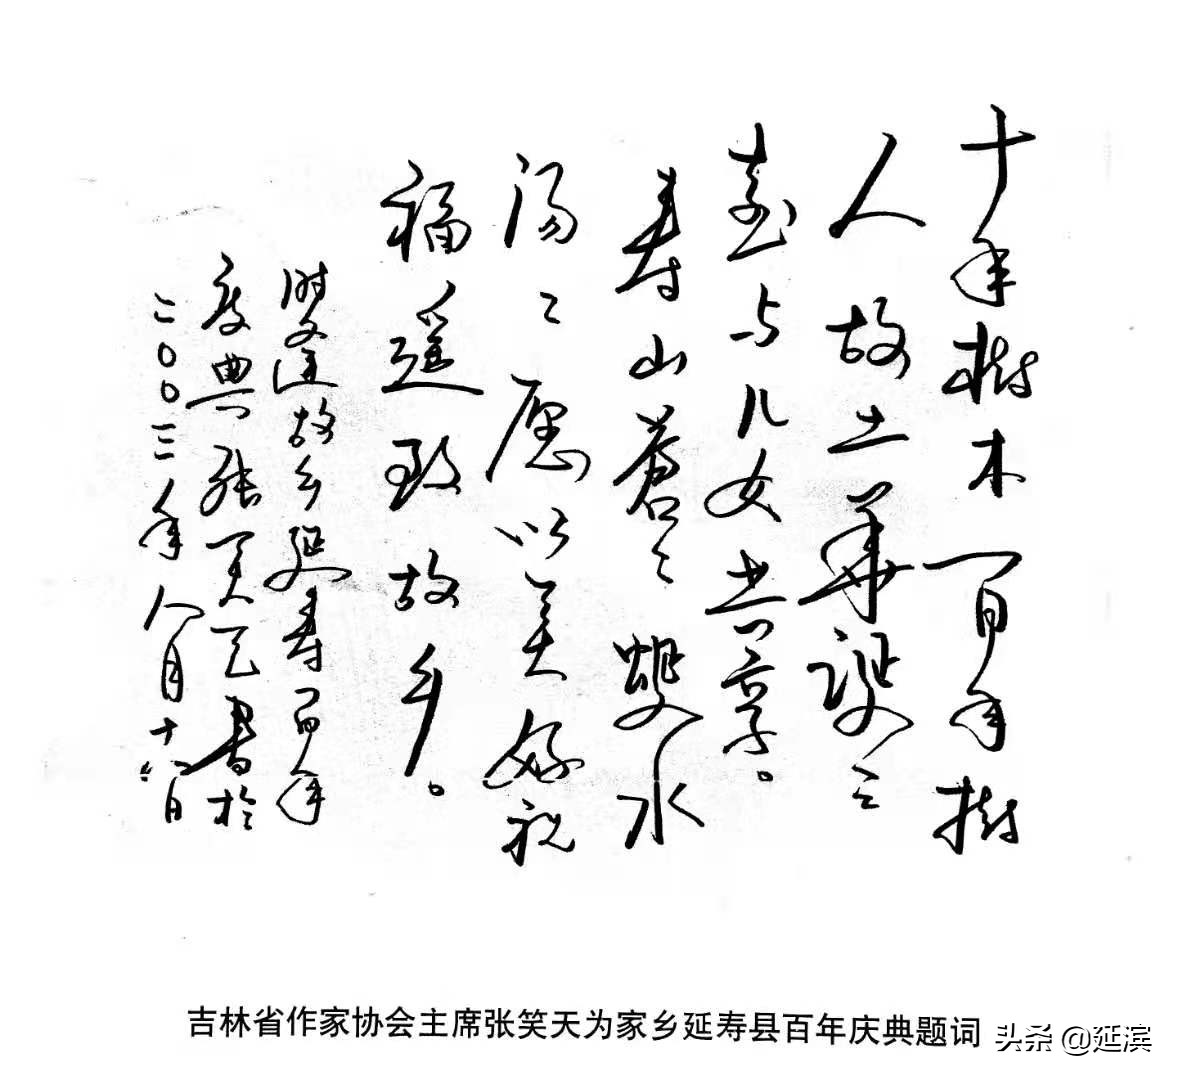 十年樹木百年樹
人故土華诞之
喜与儿女共享。
寿山蒼々蜒水
汤々愿以美好祝
福遥致故乡。
时逢故乡延寿百年
庆典张笑天書於
二〇〇三年八月十八日
吉林省作家协会主席张笑天为家乡延寿县百年庆典题词
头条 @延滨